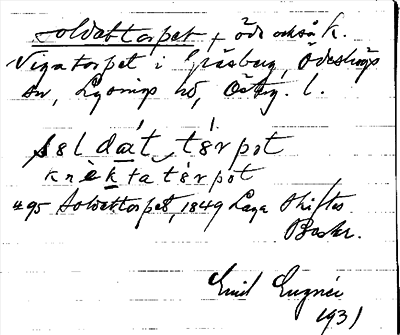 soldattorpet, + öde också k.
Vigatorpet i Gräsberg, Ödeshögs
sn, Lysings hd, Österg. l.
sɐldát‿tɐ́rpɐt
knèktatɐrpɐt
495 Soldattorpet, 1849 Laga Skiftes
Beskr.
Emil
1931